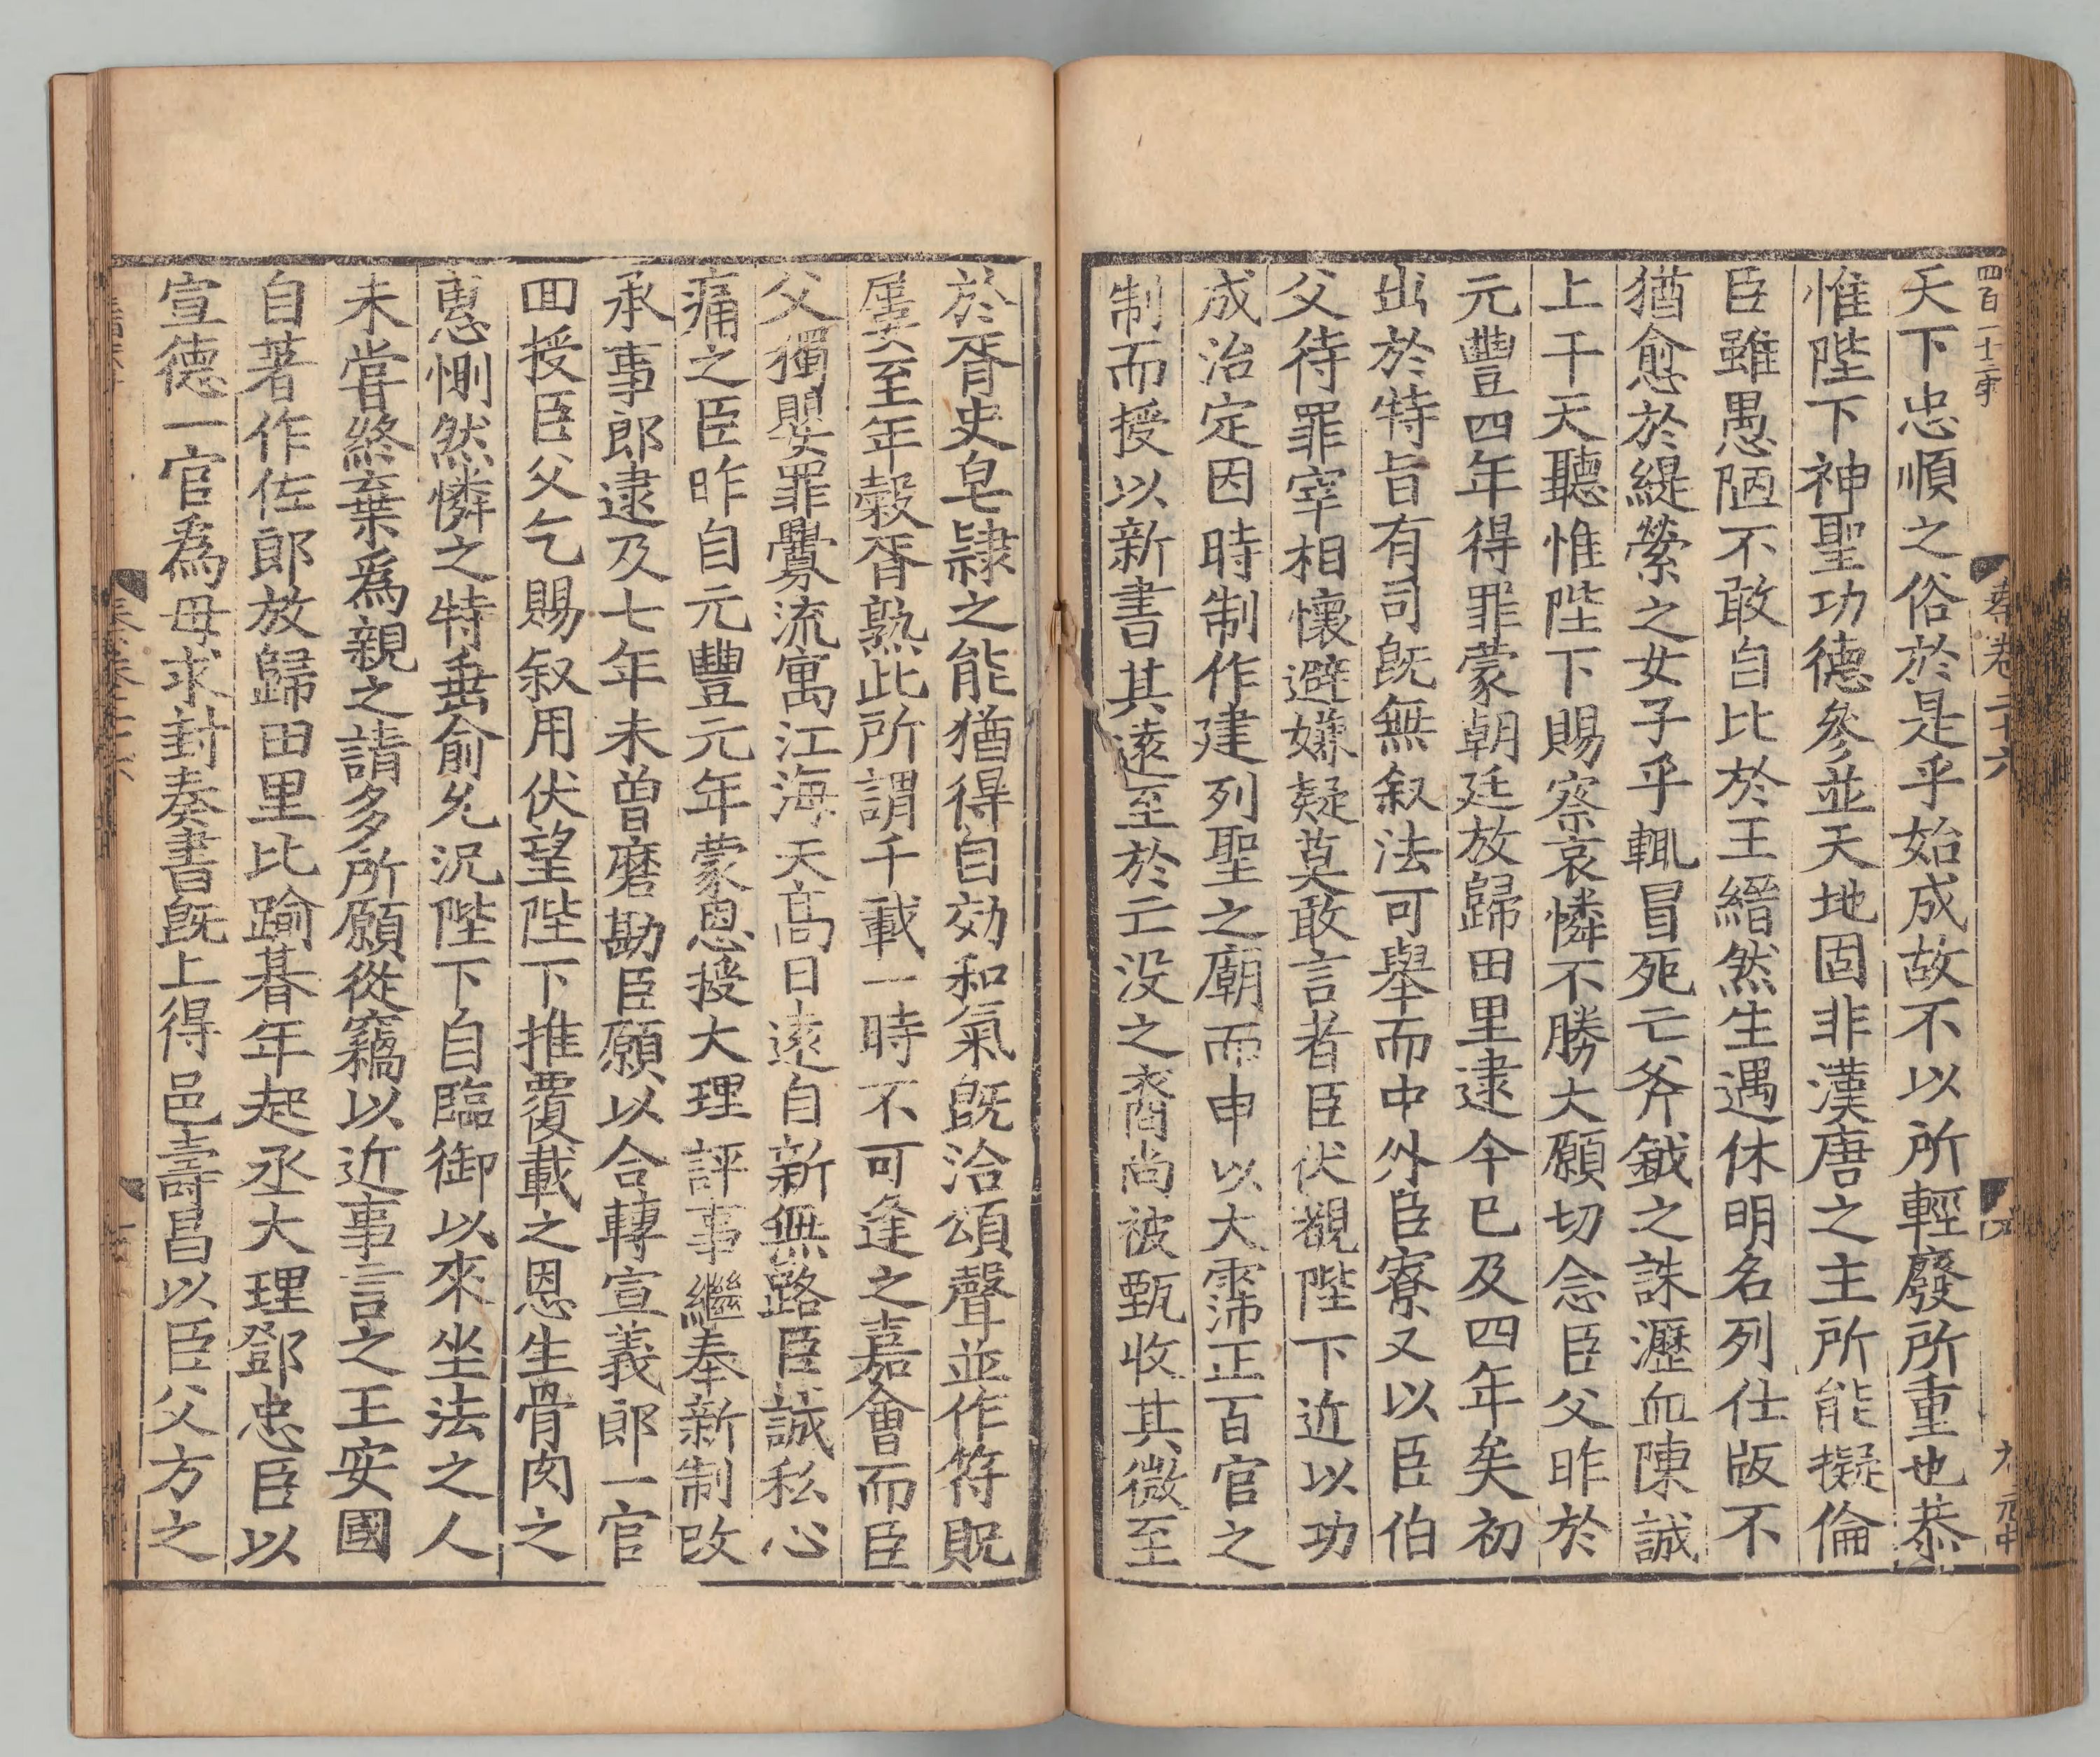 四百二十二字
秦卷二十六
九
元中
天下忠順之俗於是乎始成故不以所輕廢所重也恭
惟陛下神聖功德參並天地固非漢唐之主所能擬倫
臣雖愚陋不敢自比於王縉然生遇休明名列仕版不
猶愈於緹縈之女子乎輒冒死亡斧鉞之誅瀝血陳誠
上干天聽惟陛下賜察哀憐不勝大願切念臣父昨於
元豐四年得罪蒙朝廷放歸田里逮今已及四年矣初
出於特旨有司既無叙法可舉而中外臣寮又以臣伯
父待罪宰相懷避嫌疑莫敢言者臣伏覩陛下近以功
成治定因時制作建列聖之廟而申以大霈正百官之
制而授以新書其遠至於亡没之裔尚被甄收其微至
於胥史皂隷之能猶得自効和氣既洽頌聲並作符貺
屢至年穀胥熟此所謂千載一時不可逢之嘉會而臣
父獨嬰罪釁流寓江海天高日遠自新無路臣誠私心
痛之臣昨自元豐元年蒙恩授大理評事繼奉新制改
承事郎逮及七年未曾磨勘臣願以合轉宣義郎一官
回授臣父乞賜叙用伏望陛下推覆載之恩生骨肉之
惠惻然憐之特垂俞允況陛下自臨御以來坐法之人
未嘗終棄爲親之請多所願從竊以近事言之王安國
自著作佐郎放歸田里比踰朞年起丞大理鄧忠臣以
宣德一官爲母求封奏書既上得邑壽昌以臣父方之